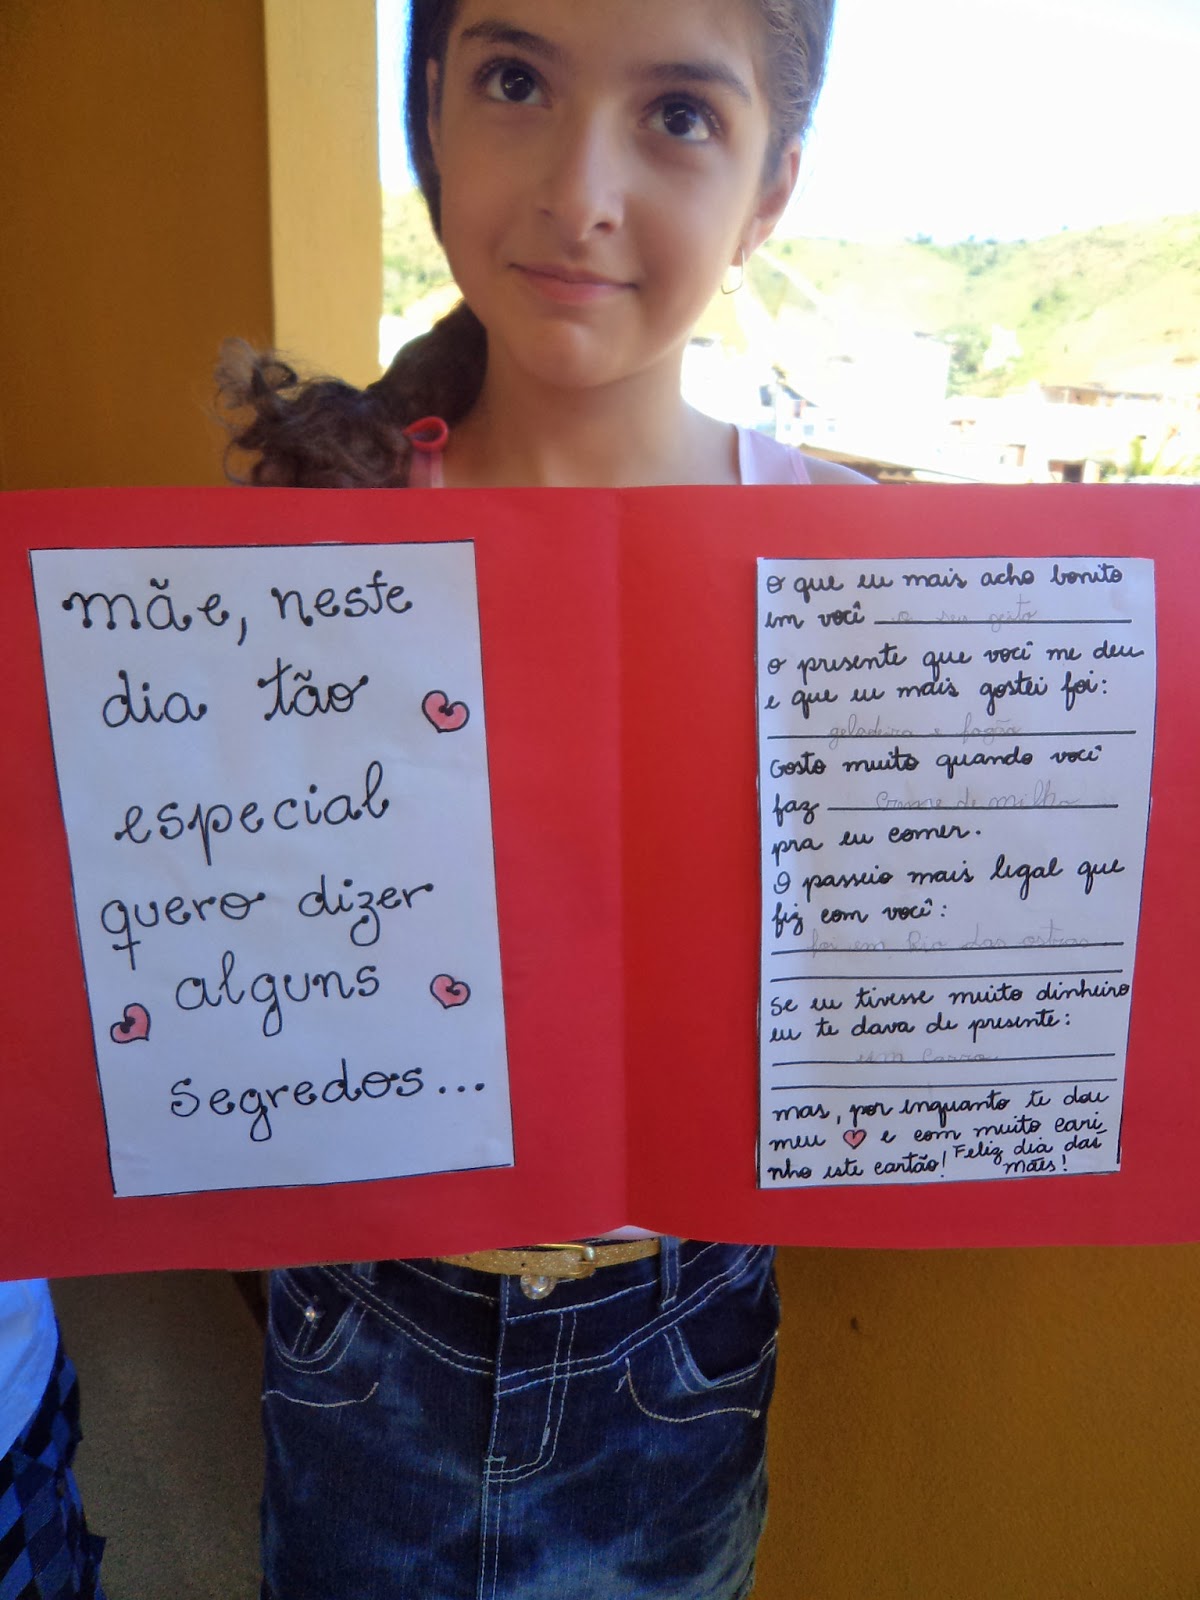 mãe, neste
dia tão
especial
quero dizer
alguns
segredos...
O que eu mais acho bonito
em você o seu gesto
O presente que você me deu
e que eu mais gostei foi:
geladeira e fogão
Gosto muito quando você
faz creme de milho
pra eu comer.
O passeio mais legal que
fiz com você:
foi em Rio das ostras
Se eu tivesse muito dinheiro
eu te dava de presente:
um carro
mas, por enquanto te dou
meu e com muito cari-
nho este cartão! Feliz dia das
mães!